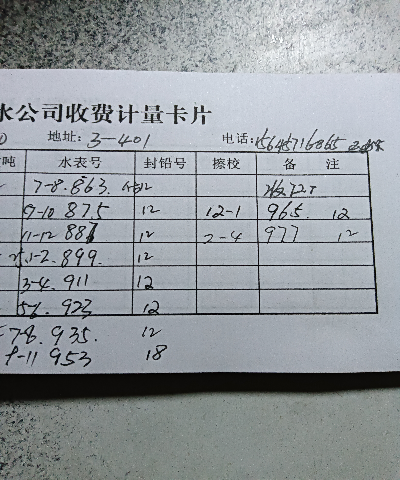 水公司收费计量卡片
地址: 3-401 电话:
吨 水表号 封铅号 擦校 备 注
7-8. 863. 12
9-10 875 12 12-1 965. 12
11-12 887 12 2-4 977 12
1-2. 899. 12
3-4. 911 12
5-6. 923 12
7-8. 935. 12
9-11 953 18